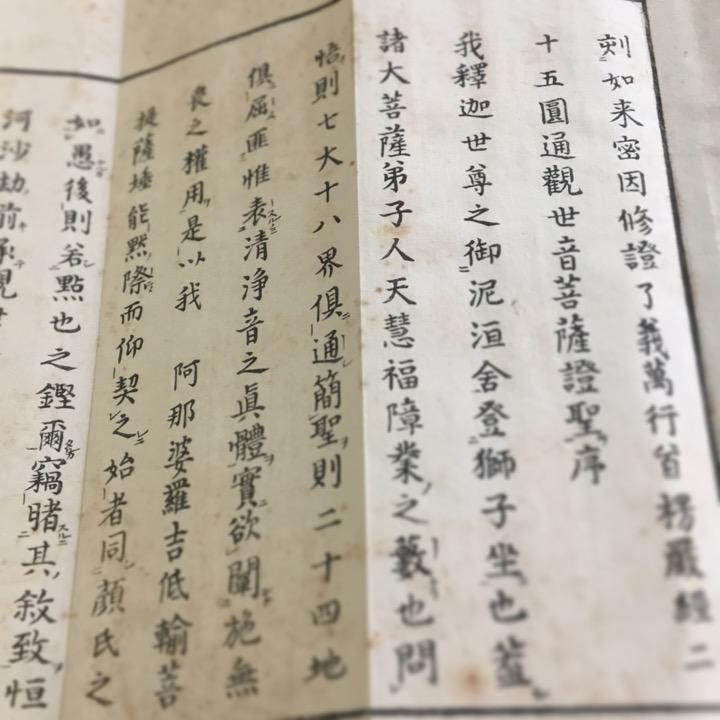 刻如来密因修證了義萬行首楞嚴經二
十五圓通觀世音菩薩證聖序
我釋迦世尊之御泥洹舍登獅子坐也蓋
諸大菩薩弟子人天慧福障業之藪也問
悟則七大十八界俱通簡聖則二十四地
俱屈匪惟表清淨音之眞體實欲闡施無
畏之權用是以我 阿那婆羅吉低輸菩
提薩埵能默際而仰契之始者同顏氏之
如愚後則若點也之鏗爾竊睹其敘致恒
河沙劫前承